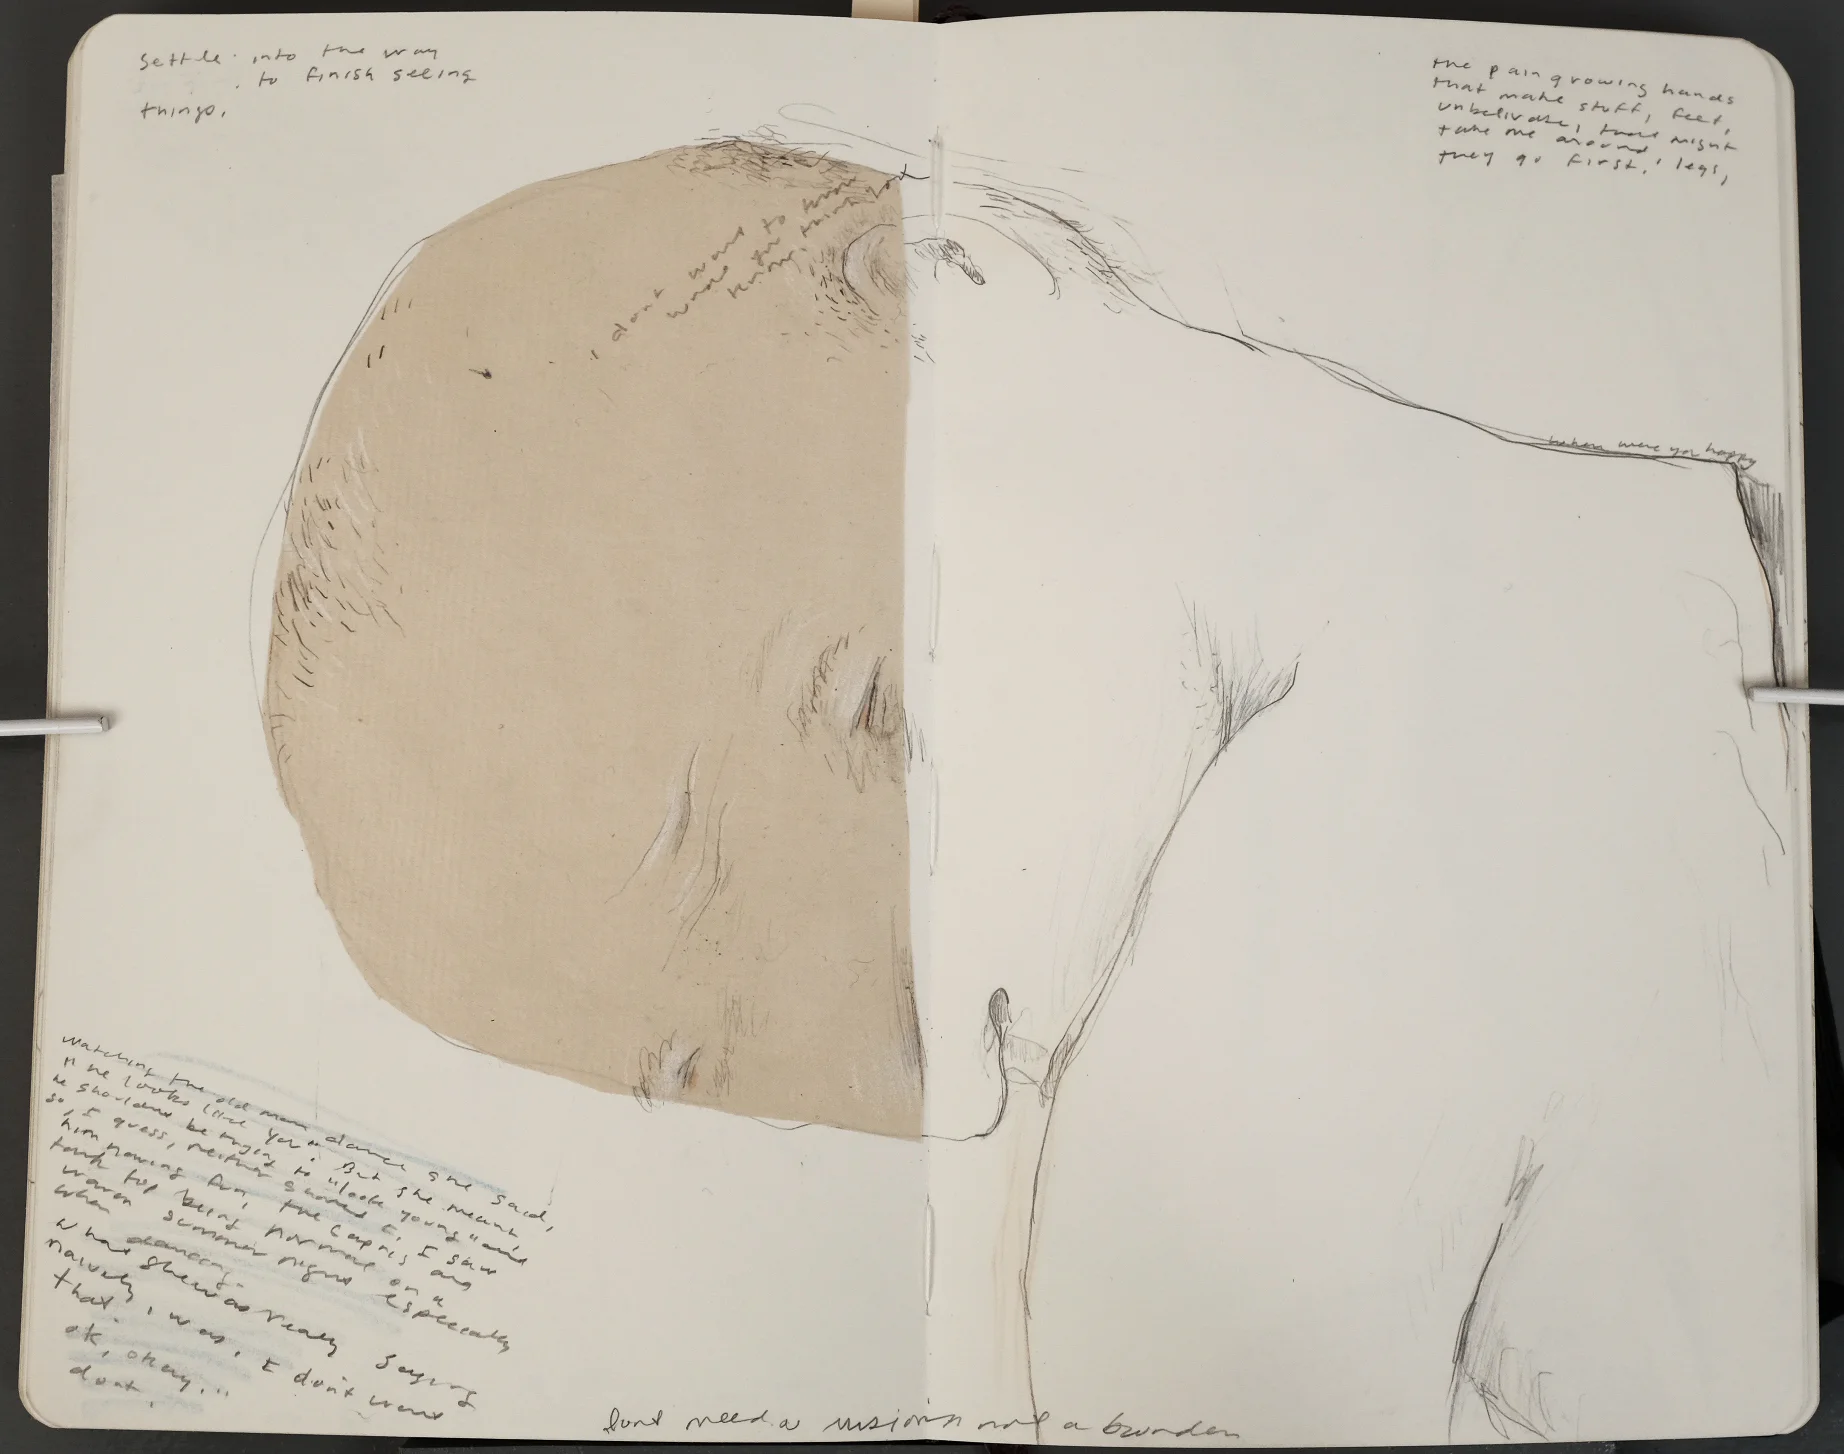 settle into the way
to finish seeing
things.
the pain growing hands
that make stuff, feet,
unbelivable, might
take me around, legs,
they go first.
i dont want to know
you to
know, think
when were you happy
watching the old man dance she said,
"he looks like you". But she meant
he shouldnt be trying to "look young" and
so, I guess, neither should I, I saw
him having fun, the capris and
tank top being normal on a
warm summer night especially
when dancing.
what she was really saying
naively, i was, I don't want
that.
ok, okay...
dont.
dont need a vision not a burden